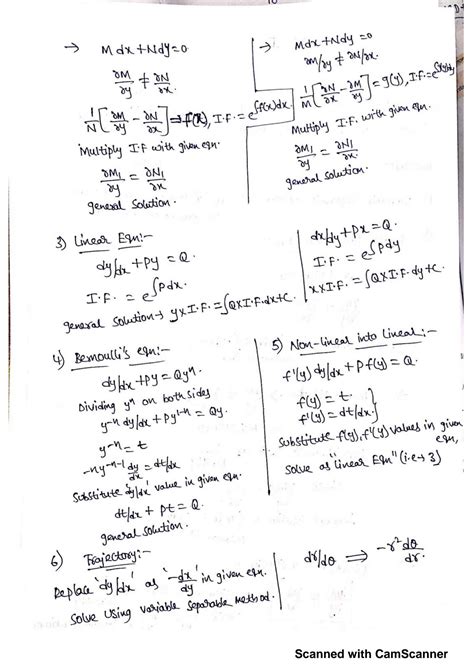 → Mdx+Ndy=0
∂M/∂y ≠ ∂N/∂x.
1/N [∂M/∂y - ∂N/∂x] ⇒ f(x), I.F. = e^∫f(x)dx.
Multiply I.F with given eqn.
∂M₁/∂y = ∂N₁/∂x.
general solution.
→ Mdx+Ndy=0
∂M/∂y ≠ ∂N/∂x.
1/M [∂N/∂x - ∂M/∂y] = g(y), I.F. = e^∫g(y)dy
Multiply I.F. with given eqn.
∂M₁/∂y = ∂N₁/∂x.
general solution.
3) Linear Eqn:-
dy/dx + Py = Q.
I.F. = e^∫Pdx.
general solution → y×I.F. = ∫Q×I.F.dx+C.
dx/dy + Px = Q.
I.F. = e^∫Pdy
x×I.F. = ∫Q×I.F.dy+C.
4) Bernoulli's eqn:-
dy/dx + Py = Qyⁿ.
Dividing yⁿ on both sides
y⁻ⁿ dy/dx + Py¹⁻ⁿ = Qy.
y⁻ⁿ = t
-ny⁻ⁿ⁻¹ dy/dx = dt/dx
Substitute 'dy/dx' value in given eqn.
dt/dx + Pt = Q.
general solution.
5) Non-linear into Linear:-
f'(y) dy/dx + P f(y) = Q.
f(y) = t.
f'(y) = dt/dx. }
Substitute f(y), f'(y) values in given eqn,
Solve as "linear Eqn" (i.e → 3)
6) Trajectory:-
Replace 'dy/dx' as '-dx/dy' in given eqn.
Solve using variable separable method.
dr/dθ ⇒ -r² dθ/dr.
Scanned with CamScanner